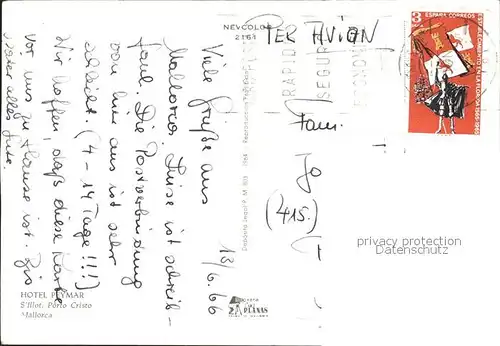 NEVCOLOR
2161
PER AVION
RAPIDO
SEGURO
3
ESPAÑA CORREOS
Fam.
Jo
(415.)
13/6.66
Viele Grüße aus
Mallorca. Luise ist schreib-
faul. Die Postverbindung
von hier aus ist sehr
schlecht (4-14 Tage!!!)
Wir hoffen, daß diese Karte
vor uns zu Hause ist. Bis
dahin alles Gute.
HOTEL PEYMAR
S'Illot, Porto Cristo
Mallorca
PLANAS
privacy protection
Datenschutz